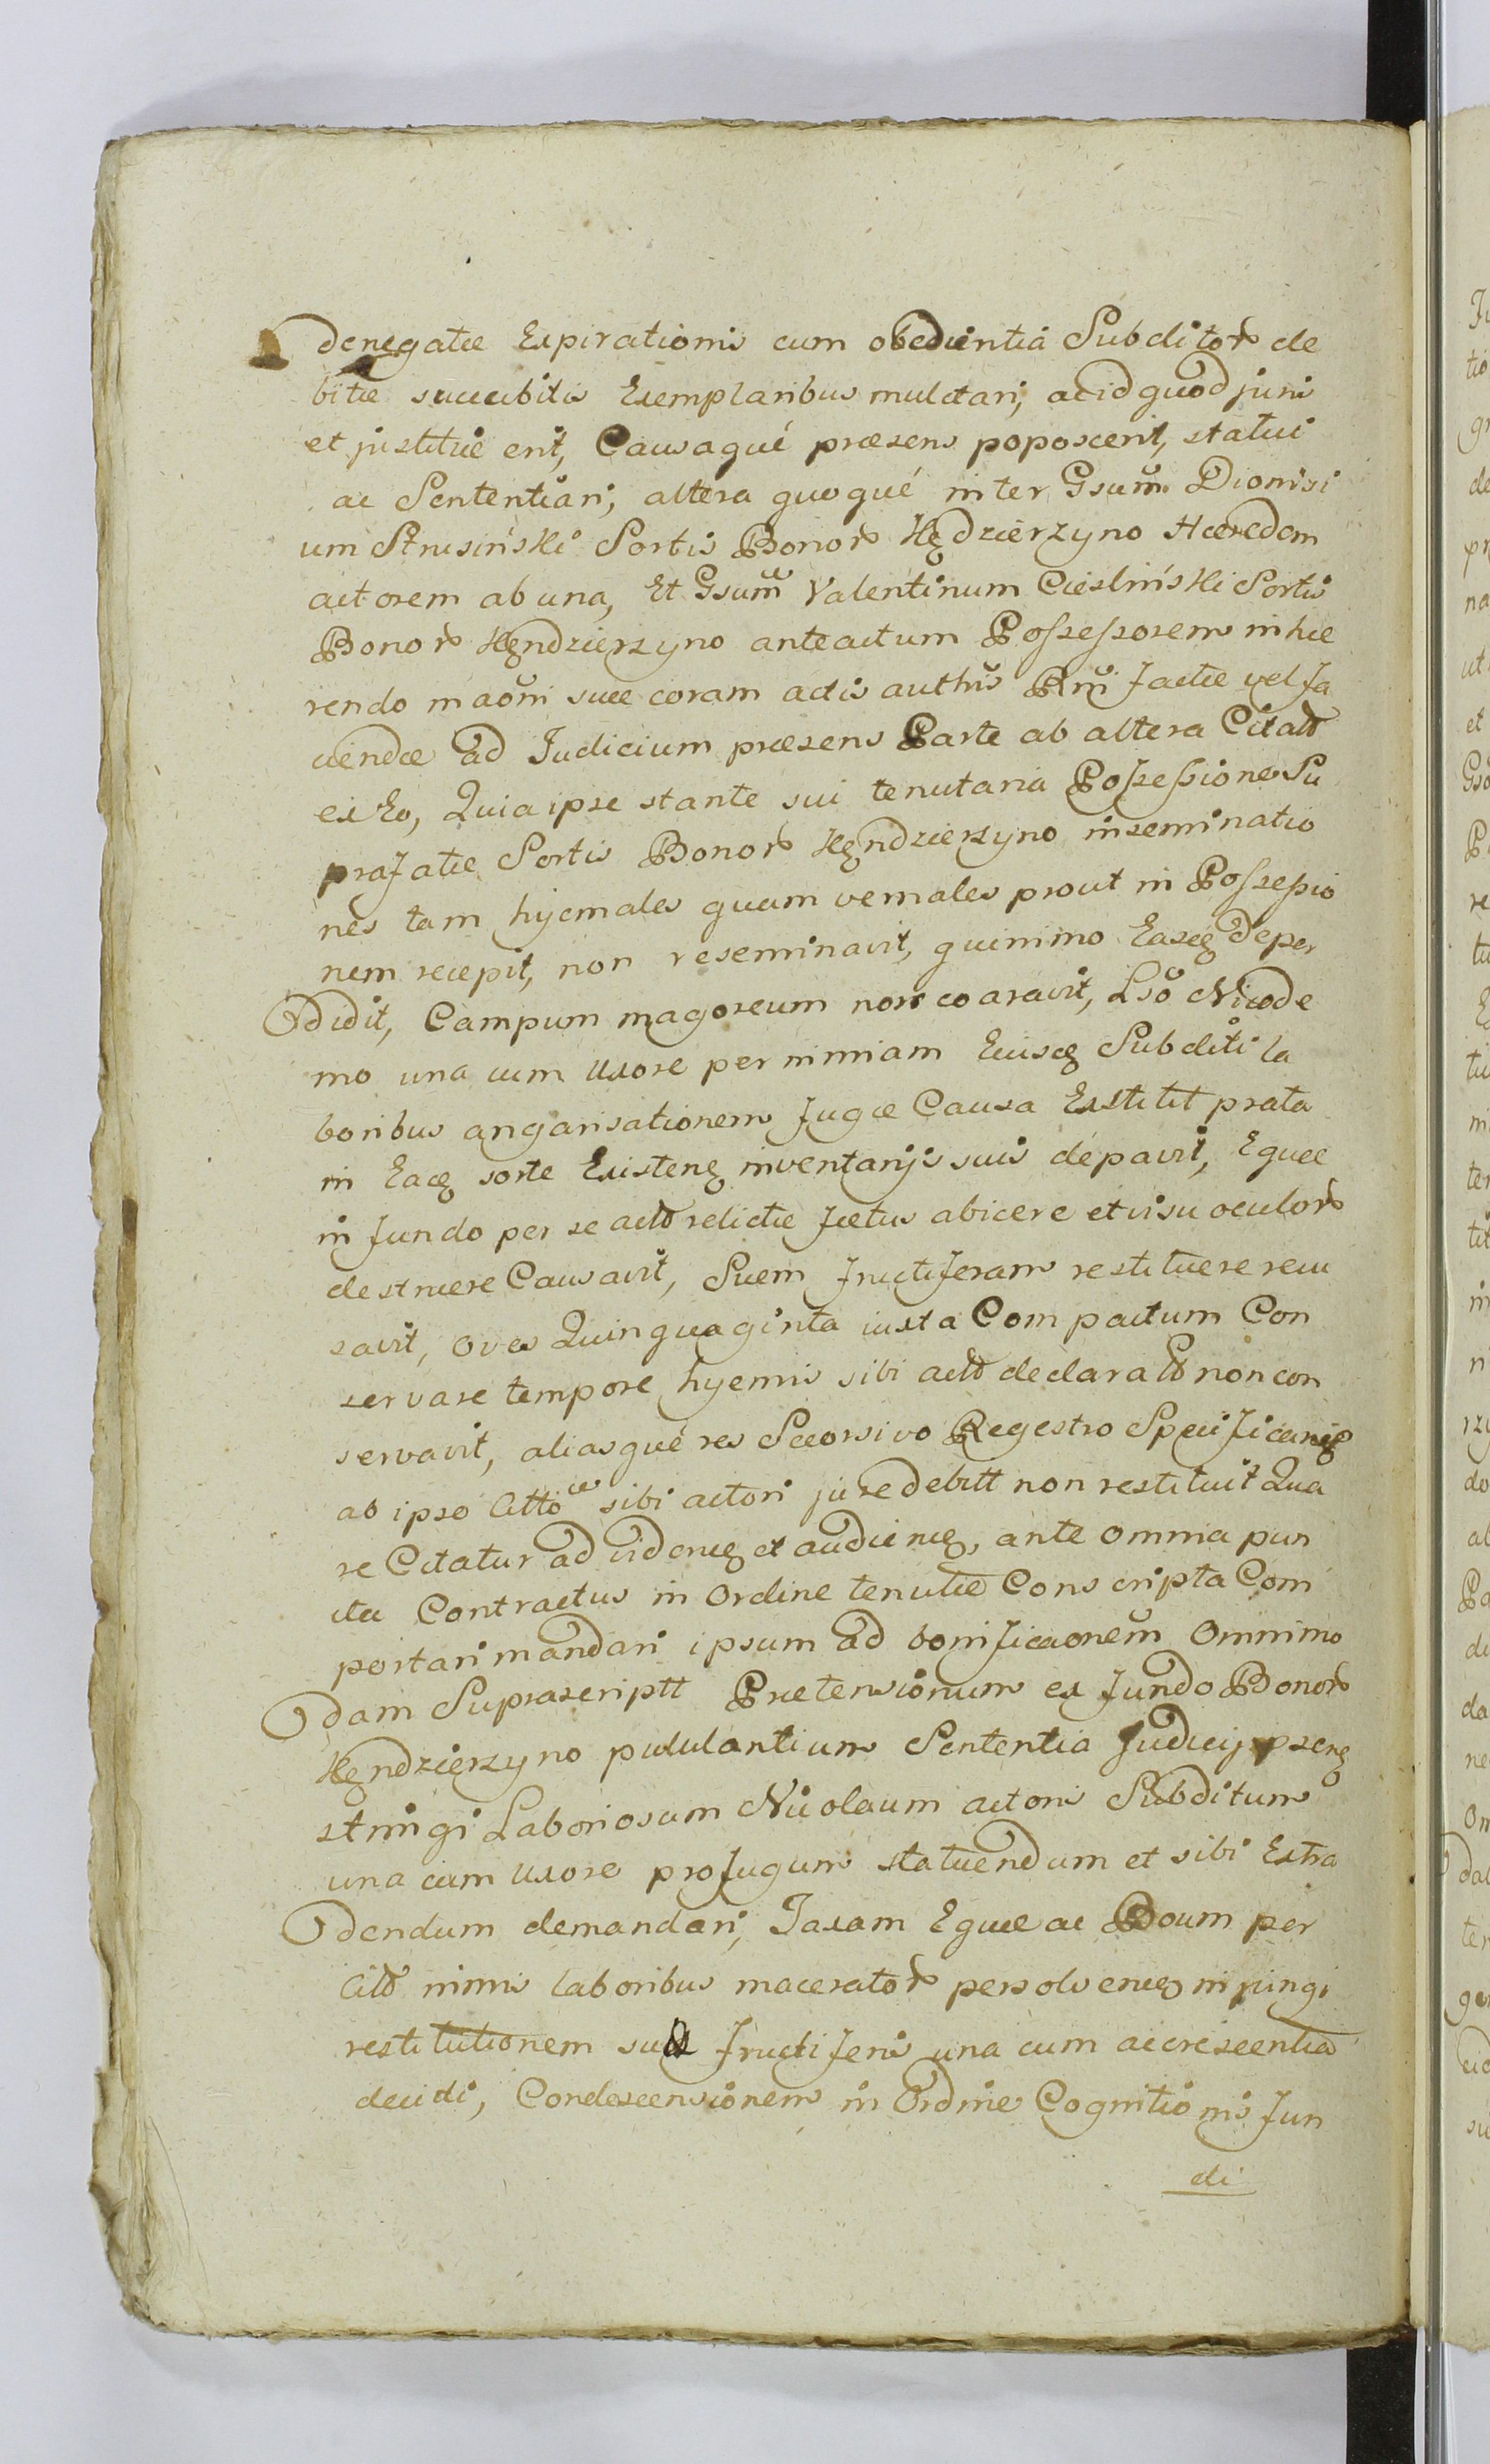 denegatæ Expirationis cum obedientia Subditor de
bitæ succubitis Exemplaribus mulctari, ac id quod juris
et justitiæ erit, Causaque præsens poposcerit, statui
ac Sententiari, altera quoque inter Gsum Dionisi
um Strusiński Sortis Bonor Kędzierzyno Hæredem
actorem ab una, Et Gsum Valentinum Cieśliński Sortis
Bonor Kęndzierzyno anteactum Possessorem inhæ
rendo maoni suæ coram actis authis Rmi factæ vel fa
ciendæ ad Judicium præsens Parte ab altera Citatt
ex Eo, Quia ipse stante sui tenutaria Possessione Su
prafatæ Sortis Bonor Kęndzierzyno inseminatio
nes tam hyemales quam vernales prout in Possessio
nem recepit, non reseminavit, quinimo Easq deper
didit, Campum magoreum non coaravit, Lso Nicode
mo una cum Uxore per nimiam Eiusq Subditi la
boribus angarisationem fugæ Causa Exstitit prata
in Eaq sorte Existenq inventarijs suis depavit, Equæ
in fundo per se actt relictæ fœtus abicere et visu oculor
destruere Causavit, Suem fructiferam restituere recu
savit, oves Quinquaginta iuxta Compactum Con
servare tempore hyemis sibi actt declaratt non con
servavit, aliasque res Seorsivo Regestro Specificanq
ab ipso Citto sibi actori jure debitt non restituit Qua
re Citatur ad videnq et audienq, ante omnia pun
cta Contractus in Ordine tenutæ Conscripta Com
portari mandari ipsum ad bonificaonem Omnimo
dam Suprascriptt Prætensionum ex fundo Bonor
Kęndzierzyno pululantium Sententia Judicij psenq
stringi Laboriosum Nicolaum actoris Subditum
una cum Uxore profugum statuendum et sibi Extra
dendum demandari, Taxam Equæ ac Boum per
Citt nimis laboribus macerator persolvenq injungi
restitutionem suis fructiferis una cum accrescentia
decidi, Condescensionem in Ordine Cognitionis fun
di